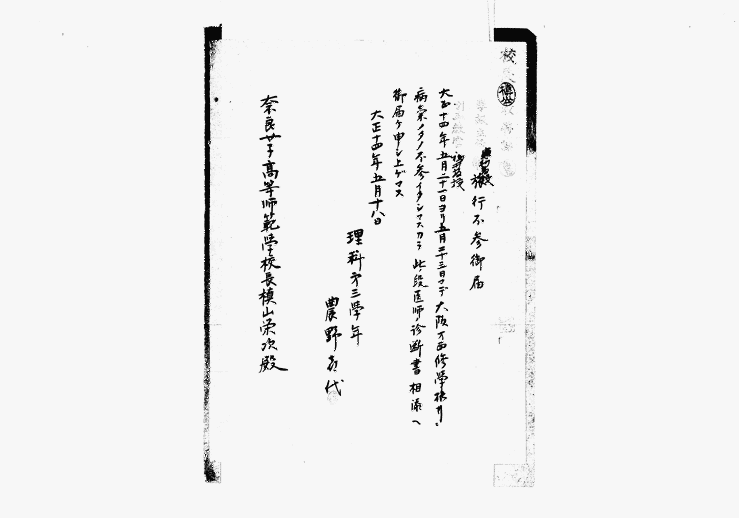 校
旅行不参御届
大正十四年五月二十一日ヨリ五月二十三日マデ大阪方面修学旅行ニ
病気ノタメ不参イタシマスカラ此段医師診断書相添ヘ
御届ケ申シ上ゲマス
大正十四年五月十八日
理科第三學年
農野
代
奈良女子高等師範學校長槇山栄次殿